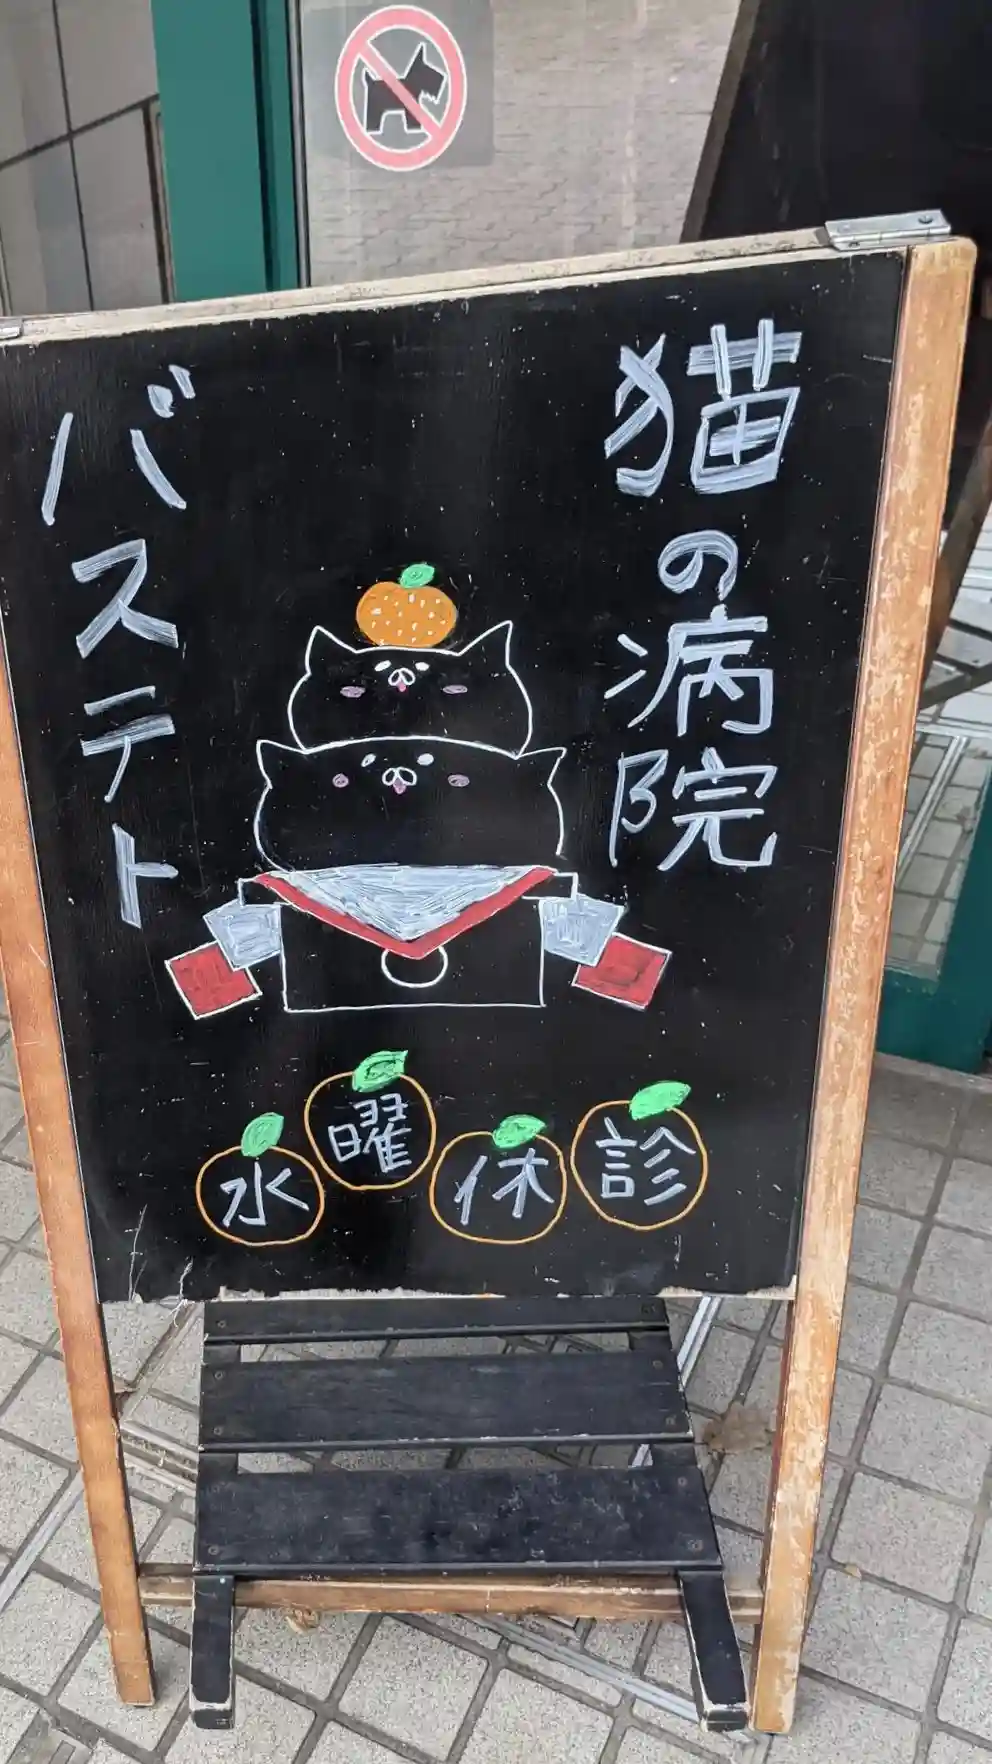 猫の病院
バステト
水曜休診